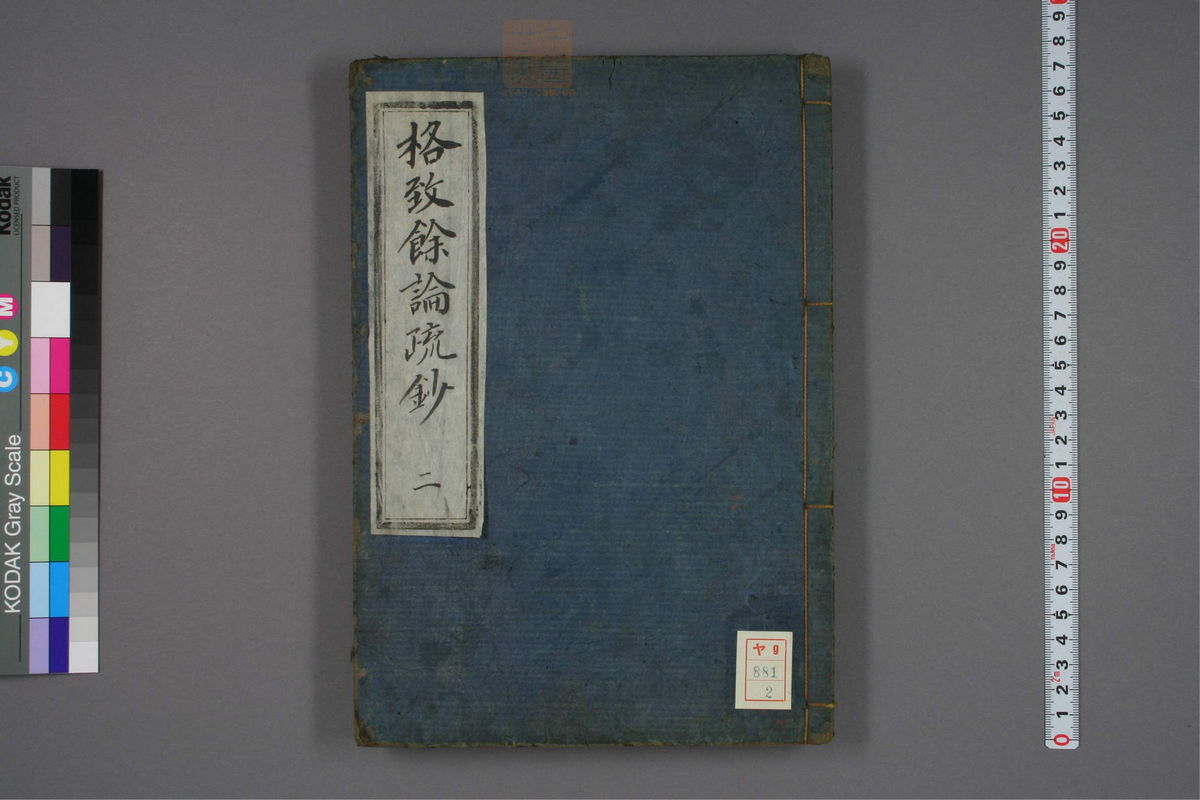 格致餘論疏鈔
二
ヤ9
881
2
Kodak
LICENSED PRODUCT
C Y M
KODAK Gray Scale
9
8
7
6
5
4
3
2
1
20
9
8
7
6
5
4
3
2
1
10
9
8
7
6
5
4
3
2m
2
1
0